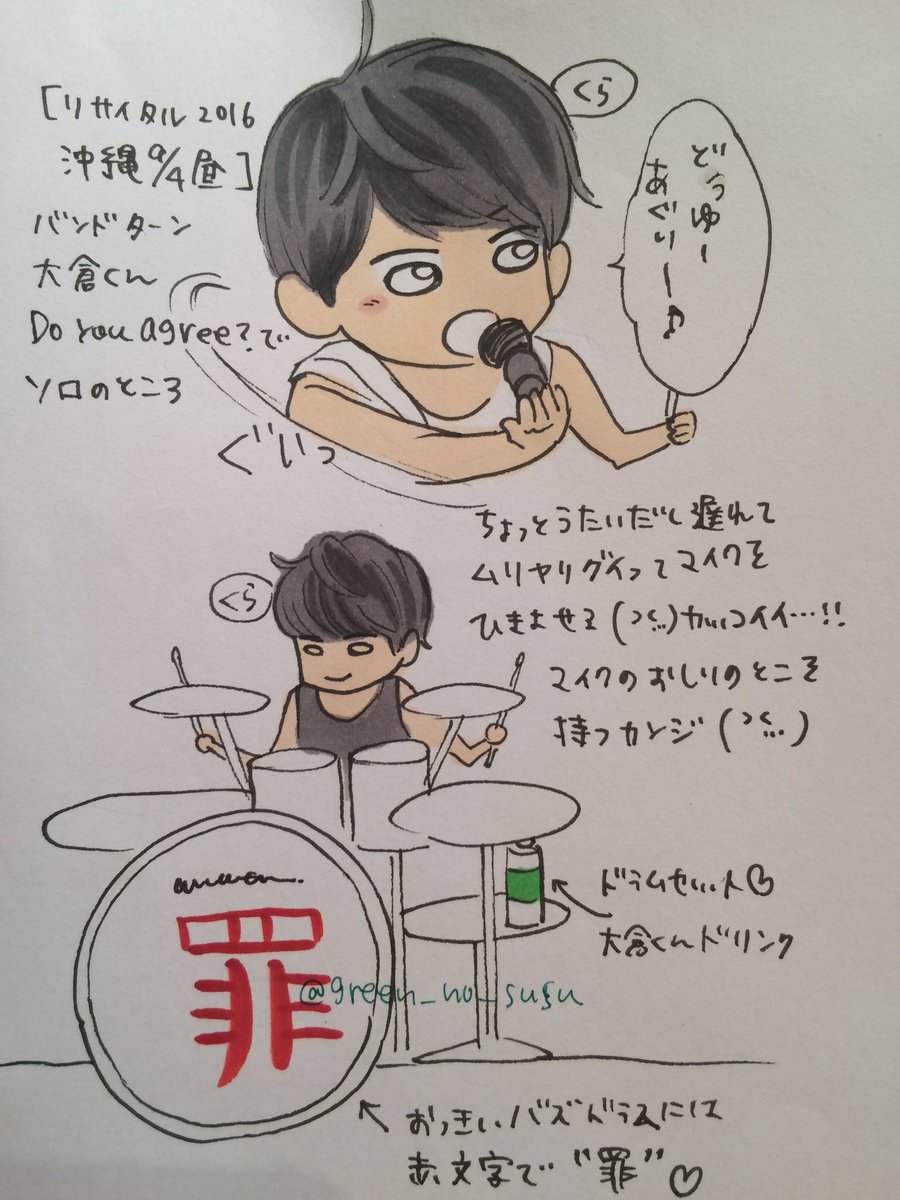 [リサイタル2016
沖縄9/4昼]
バンドターン
大倉くん
Do you agree?で
ソロのところ
くら
どぅゆー
あぐりー♪
ぐいっ
ちょっとうたいだし遅れて
ムリヤリグイってマイクを
ひきよせる(>ㅿ<)カッコイイ…!!
マイクのおしりのとこを
持つカンジ
くら
ドラムセット♡
大倉くんドリンク
罪
@green_no_susu
おっきいバズドラムには
赤文字で“罪”♡